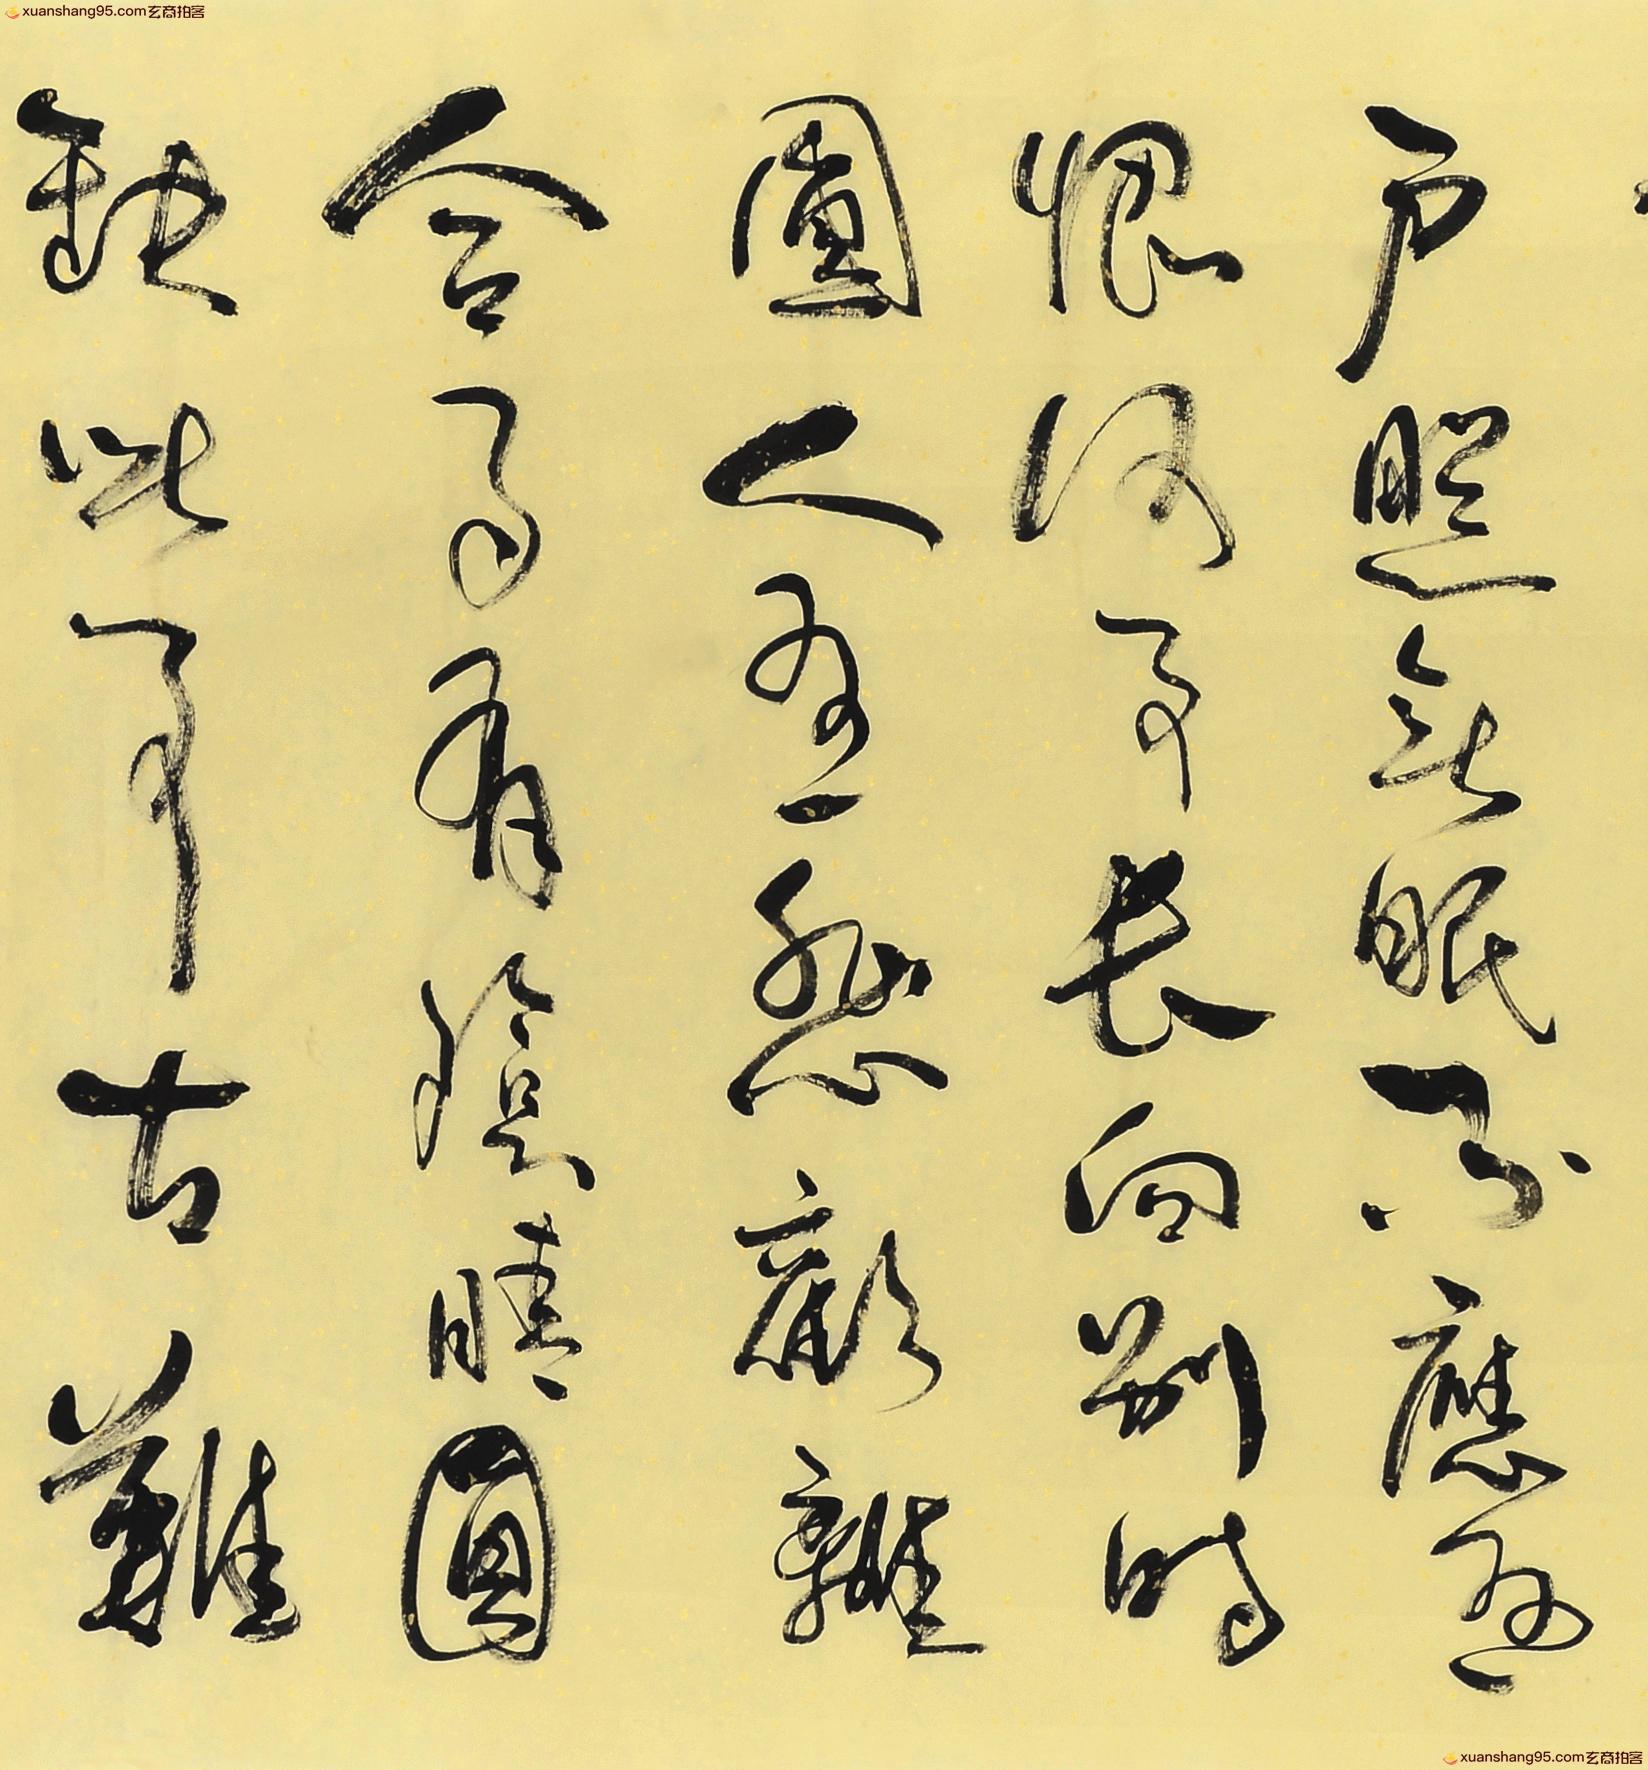 xuanshang95.com玄商拍客
户照無眠不應有
恨何事长向别時
圓人有悲歡離
合月有陰晴圓
缺此事古難
xuanshang95.com玄商拍客